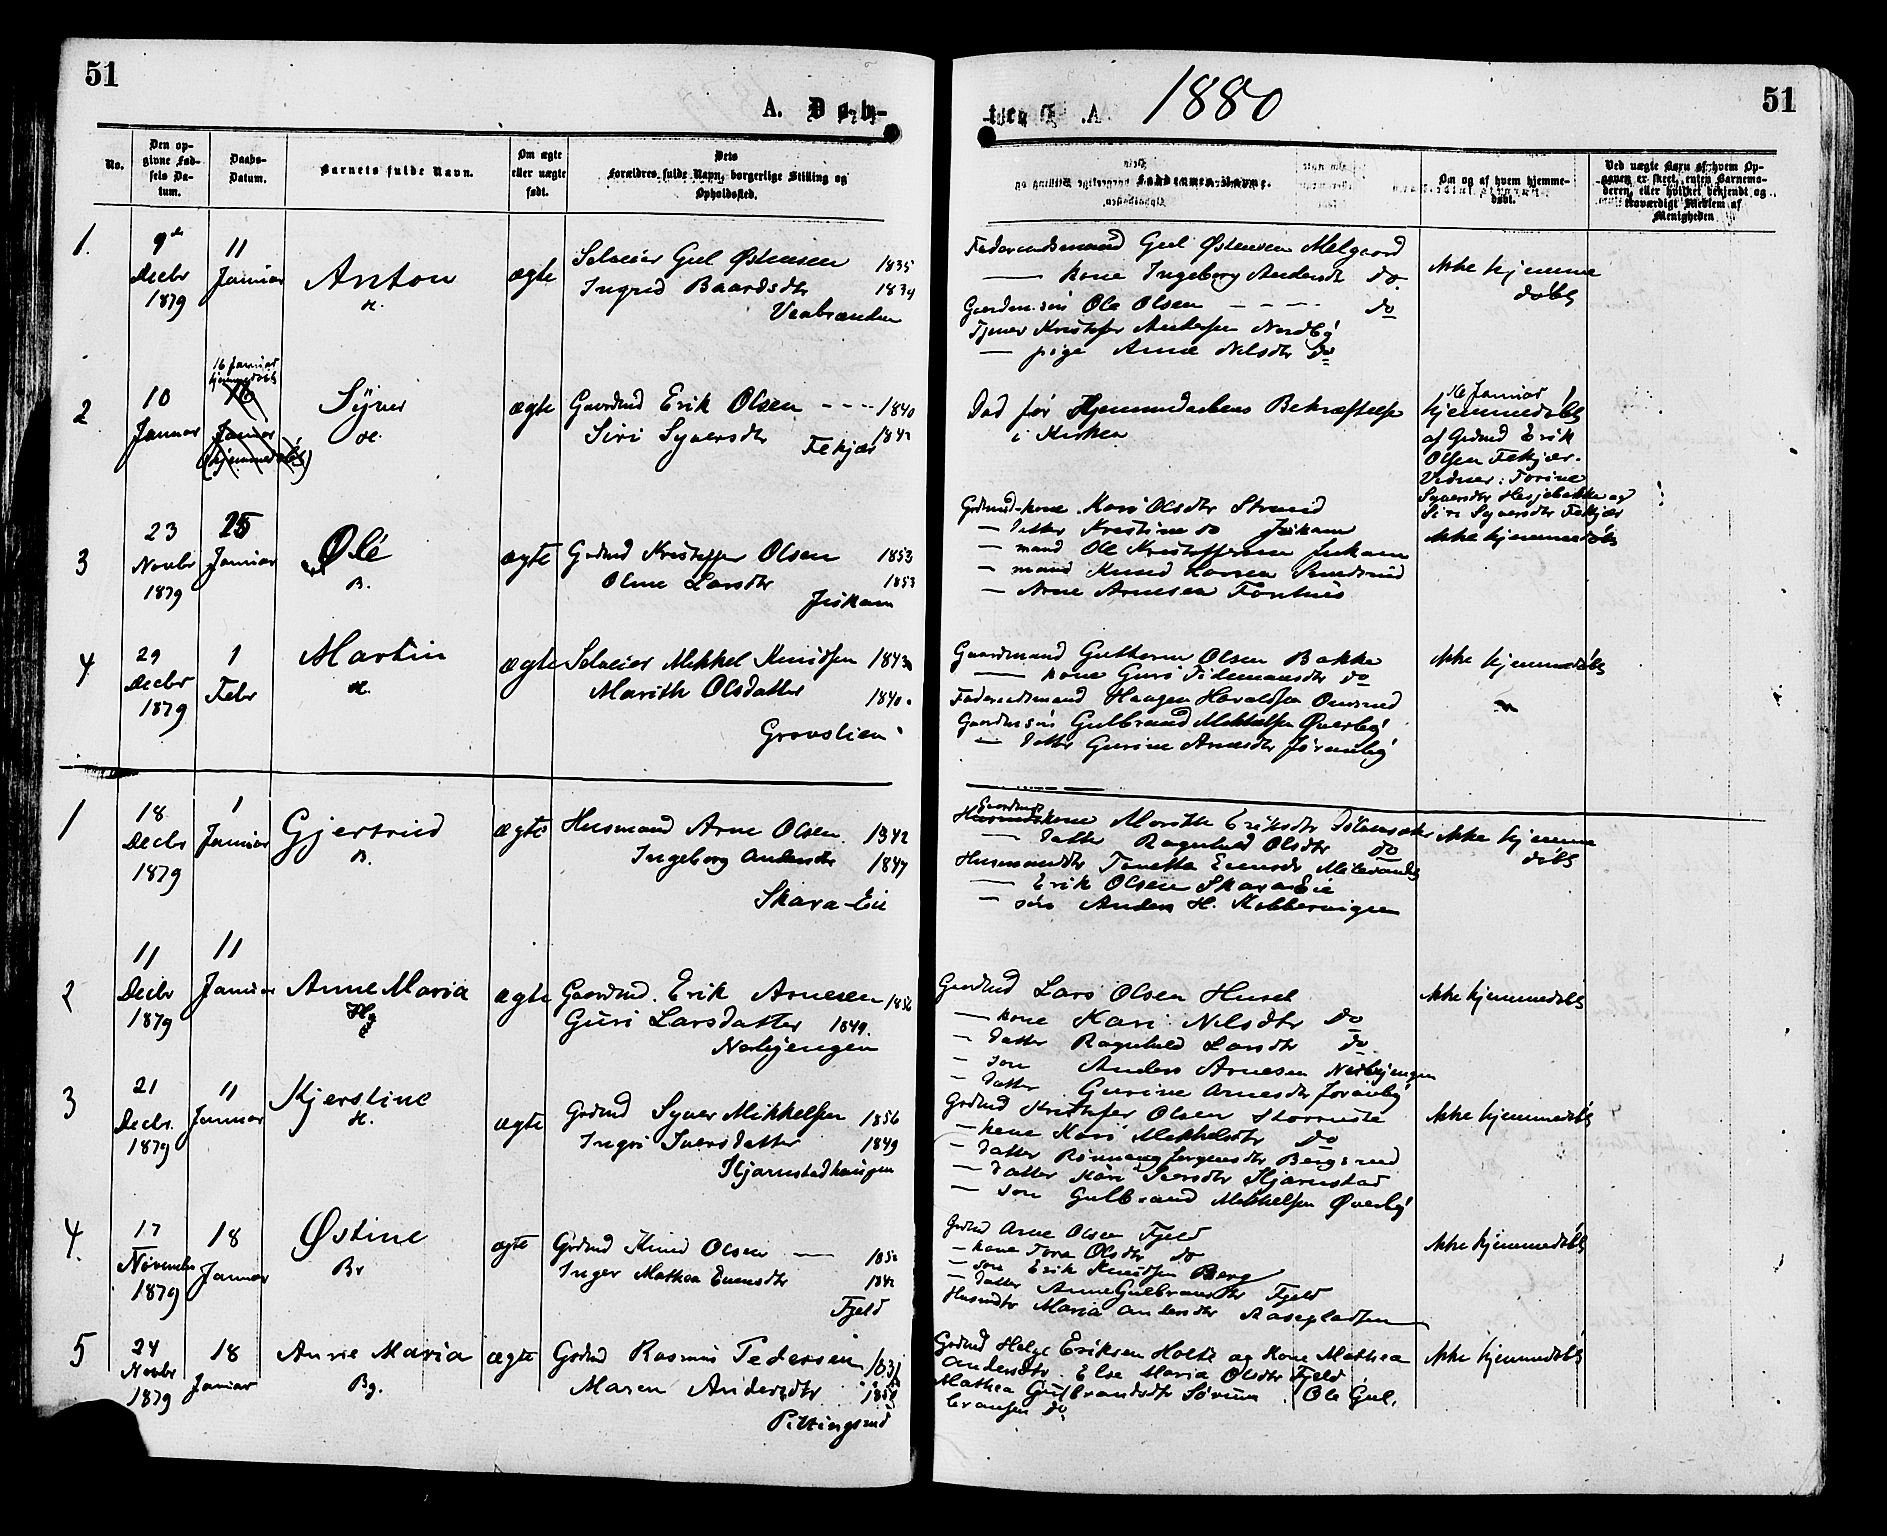 51
A. Døb-
te.
1880
51
No.
Den opgivne Fødsels Datum.
Daabs-Datum.
Barnets fulde Navn.
Om ægte eller uægte født.
Dets Forældres fulde Navn, borgerlige Stilling og Opholdsted.
Faddernes Navne.
Om og af hvem hjemmedøbt.
Ved uægte Børn af hvem Opgaven er skeet, enten Barnemoderen, eller hvilket bekjendt og troværdigt Medlem af Menigheden
1.
9de Decbr 1879
11 Januar
Anton
H.
ægte
Selveier Gul Østensen 1835
Ingrid Baardsdtr 1839
Føderaadsmand Gul Østensen Melgaard
— kone Ingeborg Andersdtr do.
Gaardm.søn Ole Olsen - - - - do
Tjener Kristofer Andersen Nordby
— pige Arne Nilsdtr do
ikke hjemme
døbt
2
10 Januar
16 Januar
hjemmedøbt
16
Januar
(hjemmedøbt)
Syver
H.
ægte
Gaardmd Erik Olsen - - - 1840
Siri Syversdtr 1842
Fekjær
Død før Hjemmedaabens Bekræftelse
i Kirken
16 Januar
hjemmedøbt
af Grdmd Erik
Olsen Fekjær.
Vidner: Torine
Syversdtr Hesjebakke og
Siri Syversdtr Fekjær
3
23 Novbr 1879
25 Januar
Ole
B.
ægte
Grdmd Kristoffer Olsen 1853
Oline Larsdtr 1853
Juskam
Grdmd-kone Kari Olsdtr Strand
— datter Kristine do Juskam
— mand Ole Kristoffersen Juskam
— mand Knud Larsen
— Arne Arnesen
ikke hjemmedøbt
4
29 Decbr 1879
1 Febr
Martin
H.
ægte
Selveier Mikkel Knudsen 1843
Marith Olsdatter 1840.
Grovslien
Gaardmand Guthorm Olsen Bakke
— kone Guri Tidemansdtr do
Føderaadsmand Haagen Haraldsen
Gaardm.søn Gulbrand Mikkelsen Øverby
— datter Gurine Arnesdtr Jøranby
ikke hjemmedøbt
1
18 Decbr 1879
1 Januar
Gjertrud
B.
ægte
Husmand Arne Olsen 1842
Ingeborg Andersdtr 1847
Skara-Eie
Gaardmd
Husmdskone Marith Eriksdtr
— datter Ragnhild Olsdtr do
Husmandsdtr Tonetta Evensdtr
— Erik Olsen Skara Eie
— søn Anders H. Kobbervigen
ikke hjemme
døbt
2
11 Decbr 1879
11 Januar
Anne Maria
Hg
ægte
Gaardmd. Erik Arnesen 1856
Guri Larsdatter 1849.
Nerbyengen
Gaardmd Lars Olsen Huset
— kone Kari Nilsdtr do
— datter Ragnhild Larsdtr do
— søn Anders Arnesen Nerbyengen
— datter Gurine Arnesdtr Jøranby
ikke hjemmedøbt
3
21 Decbr. 1879
11 Januar
Kjerstine
H.
ægte
Grdmd Syver Mikkelsen 1856
Ingri Iversdatter 1849
Hjarnstadhaugen
Grdmd Kristofer Olsen
— kone Kari Mikkelsdtr do
— datter Rønnaug Jørgensdtr Bergsrud
— datter Kari Iversdtr Hjarnstad
— søn Gulbrand Mikkelsen Øverby
ikke hjemmedøbt
4.
17 November 1879
18 Januar
Østine
Br
ægte
Grdmd Knud Olsen —
Inger Mathea Evensdtr 1842
Fjeld
Grdmd Arne Olsen Fjeld
— kone Tora Olsdtr do
— søn Erik Knudsen Berg
— datter Anne Gulbrandsdtr Fjeld
Husmdtr Maria Andersdtr Aasepladsen
ikke hjemmedøbt
5
24 Novbr 1879
18 Januar
Anne Maria
Bg.
ægte
Grdmd Rasmus Pedersen
Maren Andersdtr
Pittingsrud
Grdmd Helge Eriksen Holte og Kone Mathea
Andersdtr. Else Maria Olsdtr Fjeld
Mathea Gulbrandsdtr Sørum. Ole Gul.
bransen do.
ikke hjemmedøbt